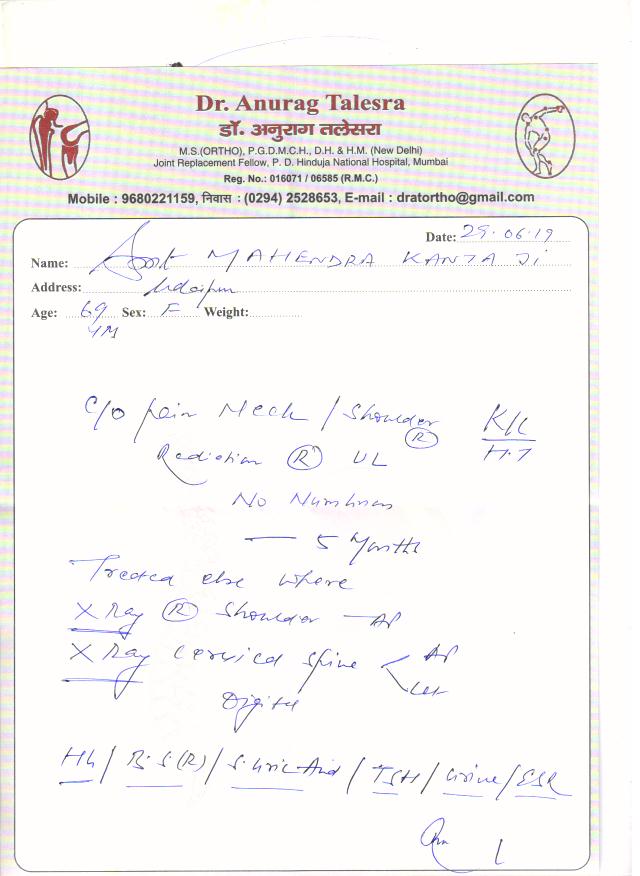 Dr. Anurag Talesra
डॉ. अनुराग तलेसरा
M.S.(ORTHO), P.G.D.M.C.H., D.H. & H.M. (New Delhi)
Joint Replacement Fellow, P. D. Hinduja National Hospital, Mumbai
Reg. No.: 016071 / 06585 (R.M.C.)
Mobile : 9680221159, निवास : (0294) 2528653, E-mail : dratortho@gmail.com
Date: 29.06.19
Name: Smt MAHENDRA KANTA Ji
Address: Udaipur
Age: 69 Sex: F Weight:
YM
C/O pain Neck / Shoulder (R) K/C
Radiation (R) UL H.T
No Numbness
— 5 Months
Treated else where
X Ray (R) Shoulder — AP
X Ray cervical spine < AP
Lat
Digital
Hb / B.S.(R) / S. Uric Acid / TSH / Urine / ESR